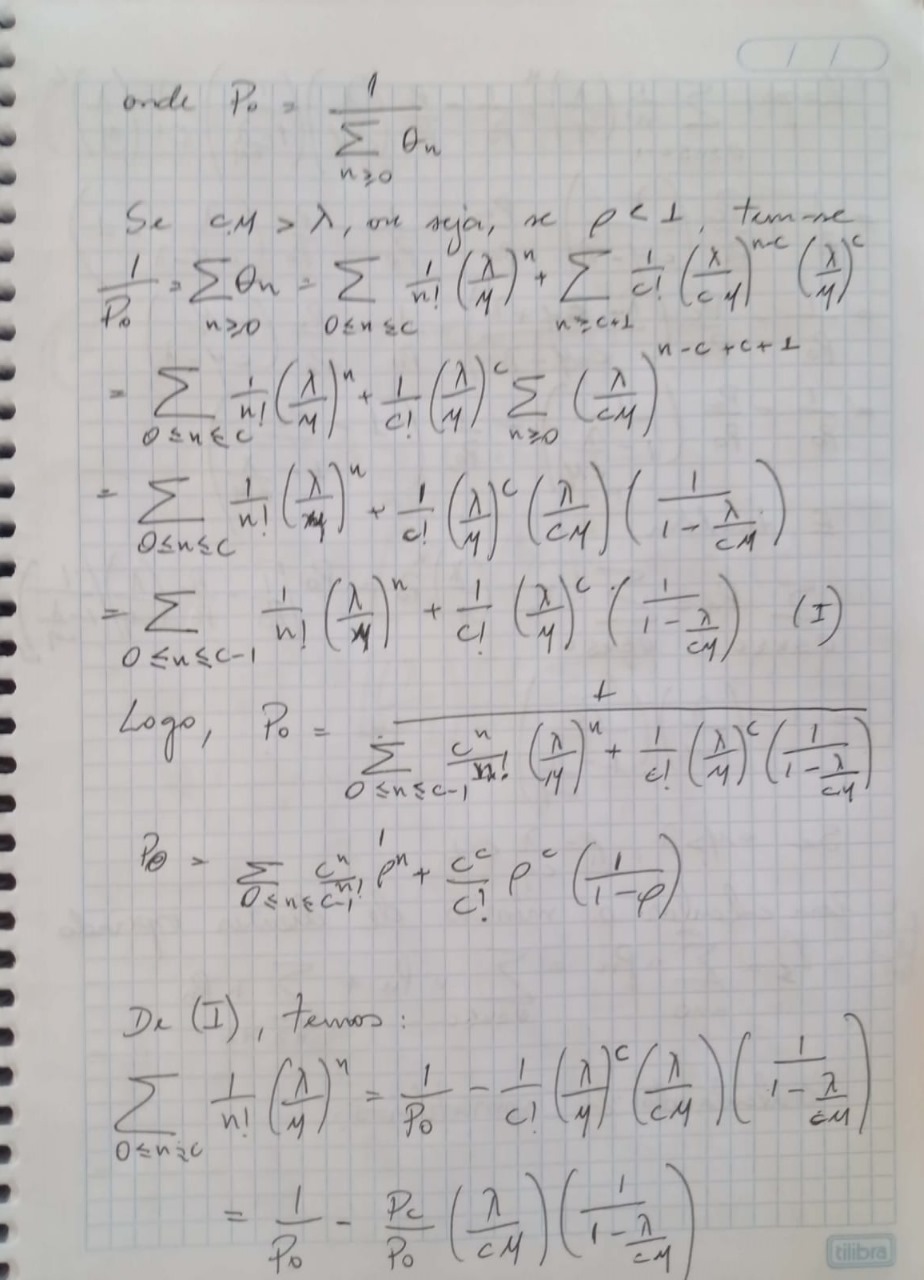 onde P₀ = 1 / Σ_{n≥0} θₙ
Se cμ > λ, ou seja, se ρ < 1, tem-se
1/P₀ = Σ_{n≥0} θₙ = Σ_{0≤n≤c} 1/n! (λ/μ)^n + Σ_{n≥c+1} 1/c! (λ/cμ)^{n-c} (λ/μ)^c
= Σ_{0≤n≤c} 1/n! (λ/μ)^n + 1/c! (λ/μ)^c Σ_{n≥0} (λ/cμ)^{n-c+c+1}
= Σ_{0≤n≤c} 1/n! (λ/μ)^n + 1/c! (λ/μ)^c (λ/cμ) (1/(1-λ/cμ))
= Σ_{0≤n≤c-1} 1/n! (λ/μ)^n + 1/c! (λ/μ)^c · (1/(1-λ/cμ)) (I)
Logo, P₀ = 1 / (Σ_{0≤n≤c-1} c^n/n! (λ/μ)^n + 1/c! (λ/μ)^c (1/(1-λ/cμ)))
P₀ = 1 / (Σ_{0≤n≤c-1} c^n/n! ρ^n + c^c/c! ρ^c (1/(1-ρ)))
De (I), temos:
Σ_{0≤n≤c} 1/n! (λ/μ)^n = 1/P₀ - 1/c! (λ/μ)^c (λ/cμ) (1/(1-λ/cμ))
= 1/P₀ - Pc/P₀ (λ/cμ) (1/(1-λ/cμ))
tilibra